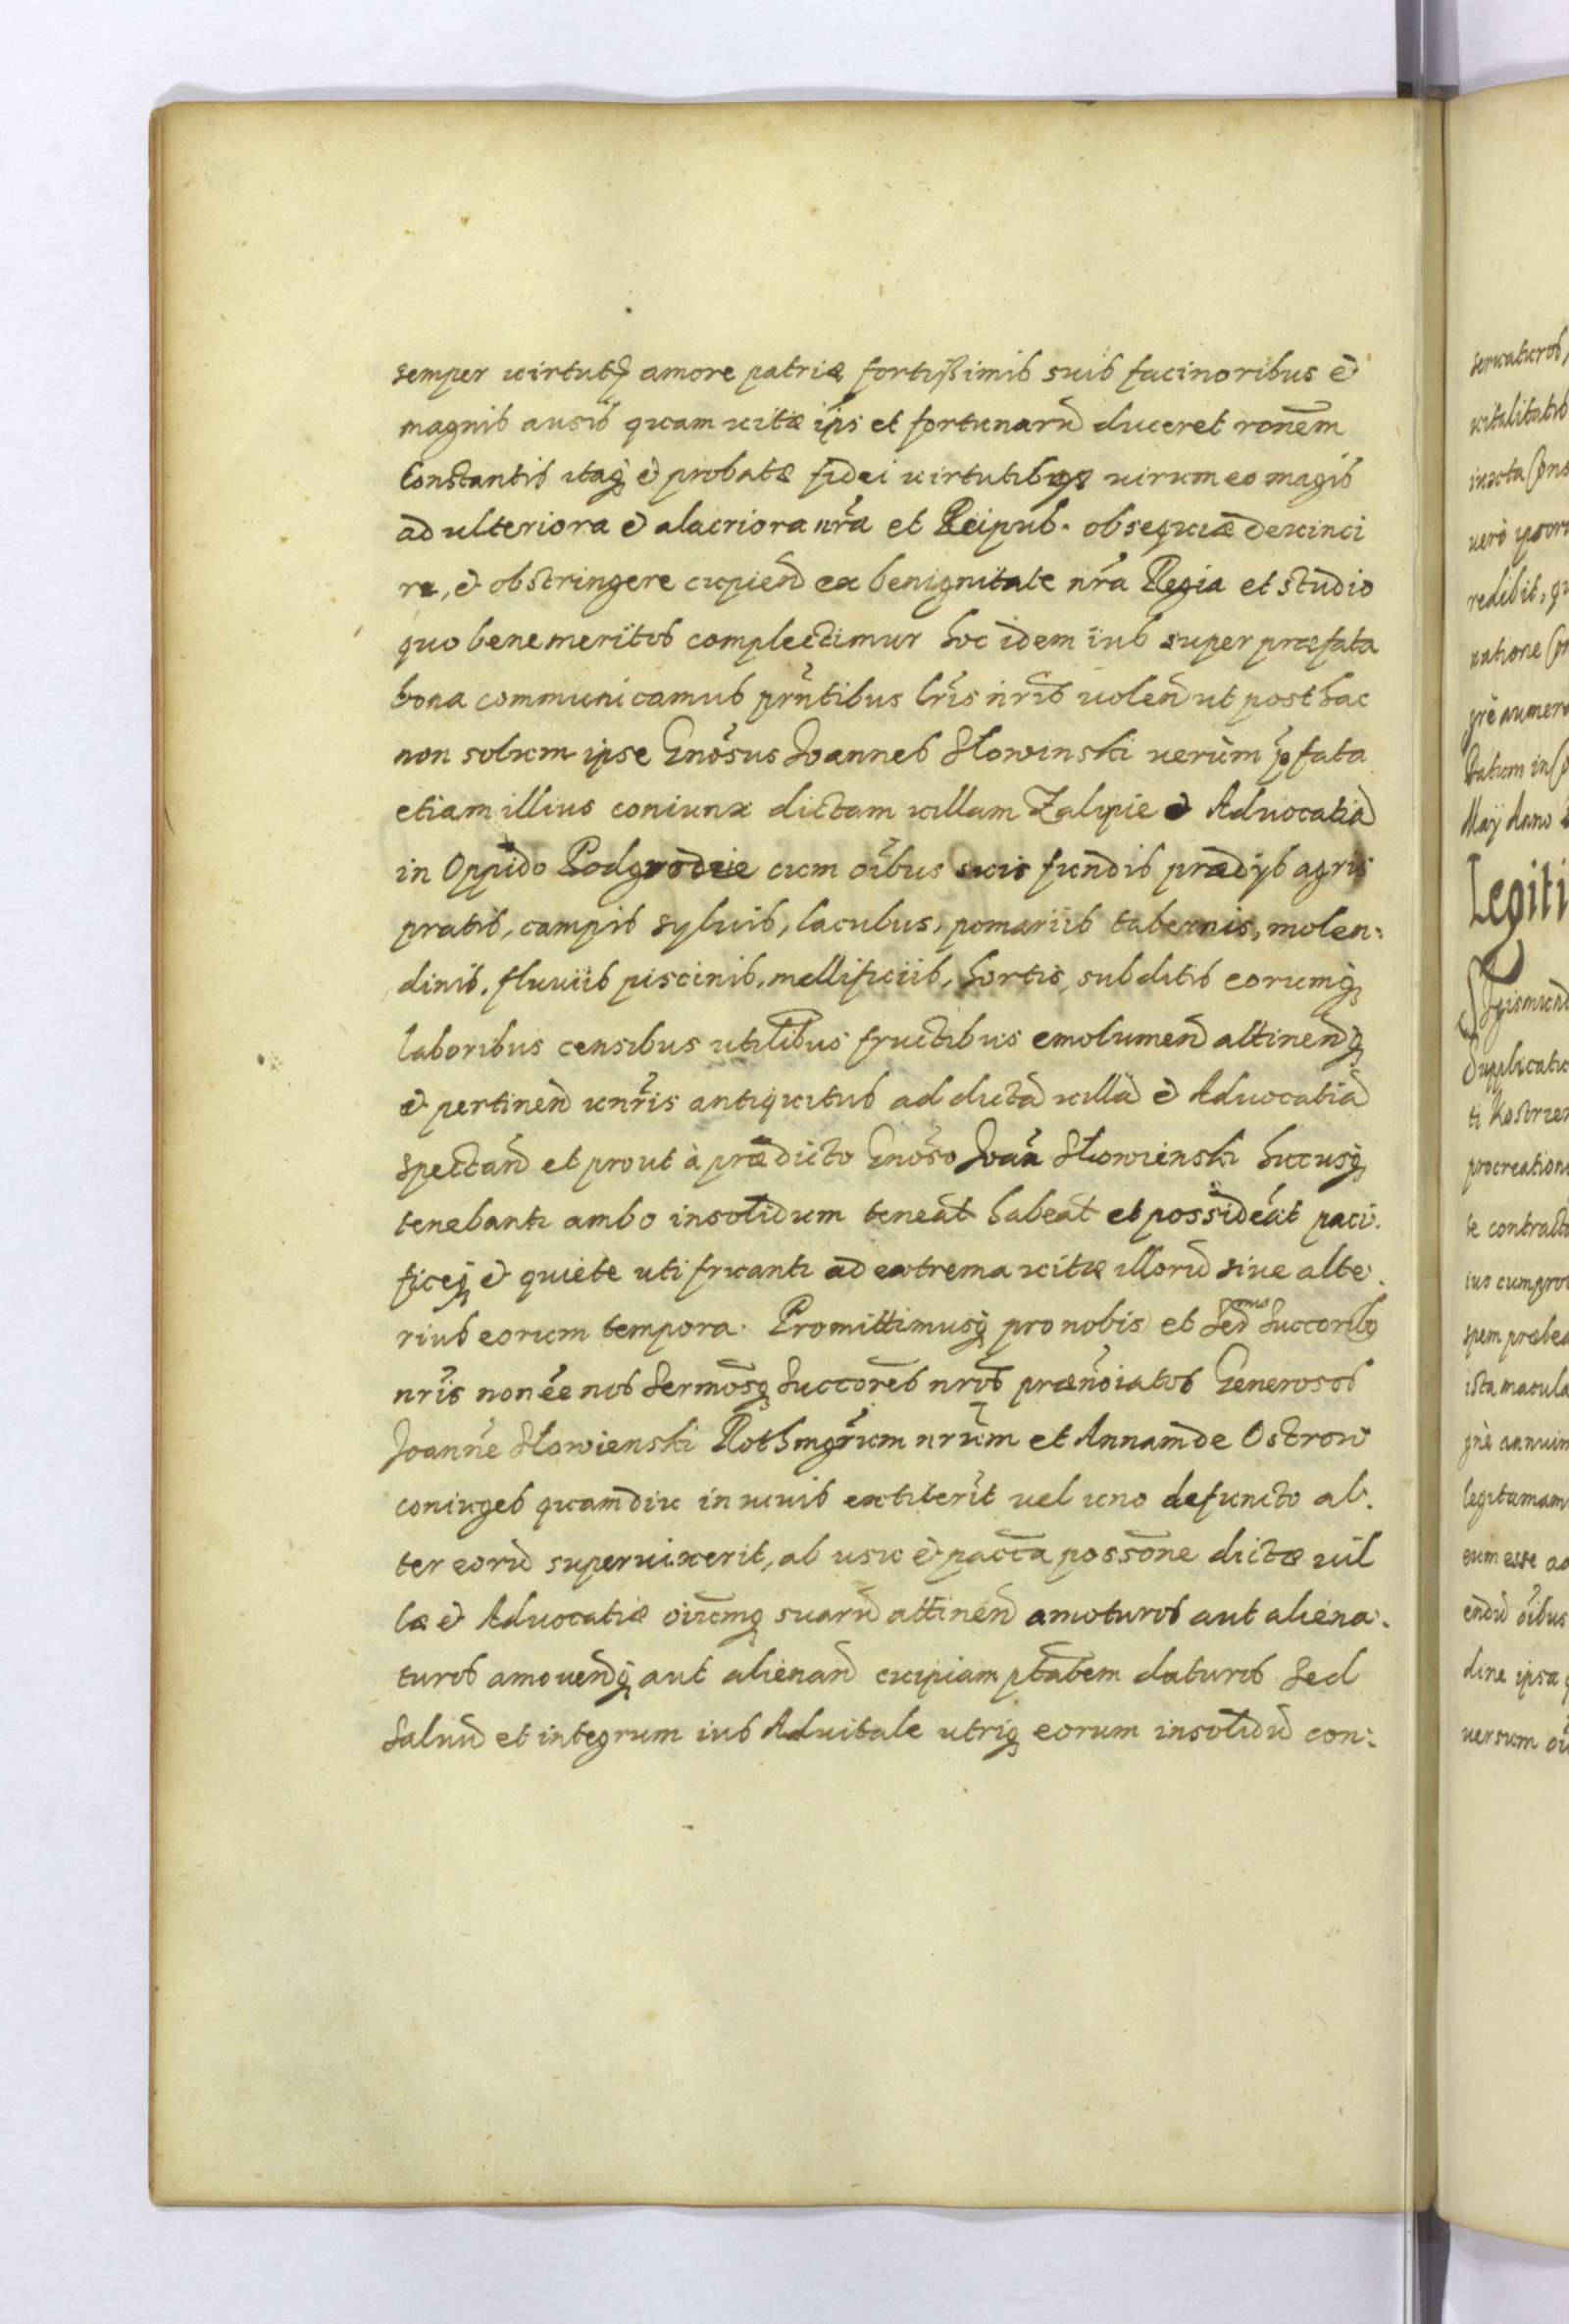 semper virtutis amore patriæ fortißimis suis facinoribus et
magnis ausis quam vitæ ips et fortunarū duceret ronem
Constantis itaq et probatæ fidei virtutibus virum eo magis
ad ulteriora et alacriora nra et Reipub. obsequia devinci
re, et obstringere cupien ex benignitate nra Regia et studio
quo benemeritos complectimur hoc idem ius super præfata
bona communicamus prntibus lris nris volen ut post hac
non solum ipse Gnosus Joannes Słowinski verùm pfata
etiam illius coniunx dictam villam Zalipie et Advocatiā
in Oppido Podgrodzie cum oibus suis fundis prædijs agris
pratis, campis sylvis, lacubus, pomariis tabernis, molen:
dinis, fluviis piscinis, mellificiis, hortis, subditis eorumq
laboribus censibus utilibus fructibus emolumen attinenq
et pertinen vnris antiquitus ad dictā villā et Advocatiā
spectan et prout à prædicto Gnoso Joan Słowienski hucusq
tenebantr ambo insolidum teneāt habeāt et possideāt paci:
ficeq et quiete uti fruantr ad extrema vitæ illorū sive alte:
rius eorum tempora. Promittimusq pro nobis et Sermis Succoribus
nris non ee nos Sermosq Succores nros prænoiatos Generosos
Joanne Słowienski Rothmgrum nrum et Annam de Ostrow
coniuges quamdiu in vivis extiterit vel uno defuncto al:
ter eorū supervixerit, ab usu et pacca possone dictæ vil
læ et Advocatiæ oiumq suarū attinen amoturos aut aliena:
turos amovendiq aut alienan cuipiam ptatem daturos Sed
Salvū et integrum ius Advitale utriq eorum insolidū con:
servaturos,
vitalitatis
iuxta Cons
verò ipsoru
redibit, qu
ratione
grè numera
Datum in
Maij Anno
Legiti
Sigismund
Supplicatu
ti Kostrze
procreation
te contracto
ius cum pro
spem præbe
ista macula
gnè annuim
legitimam
eum esse ac
endū oibus
dine ipsa q
versum oi